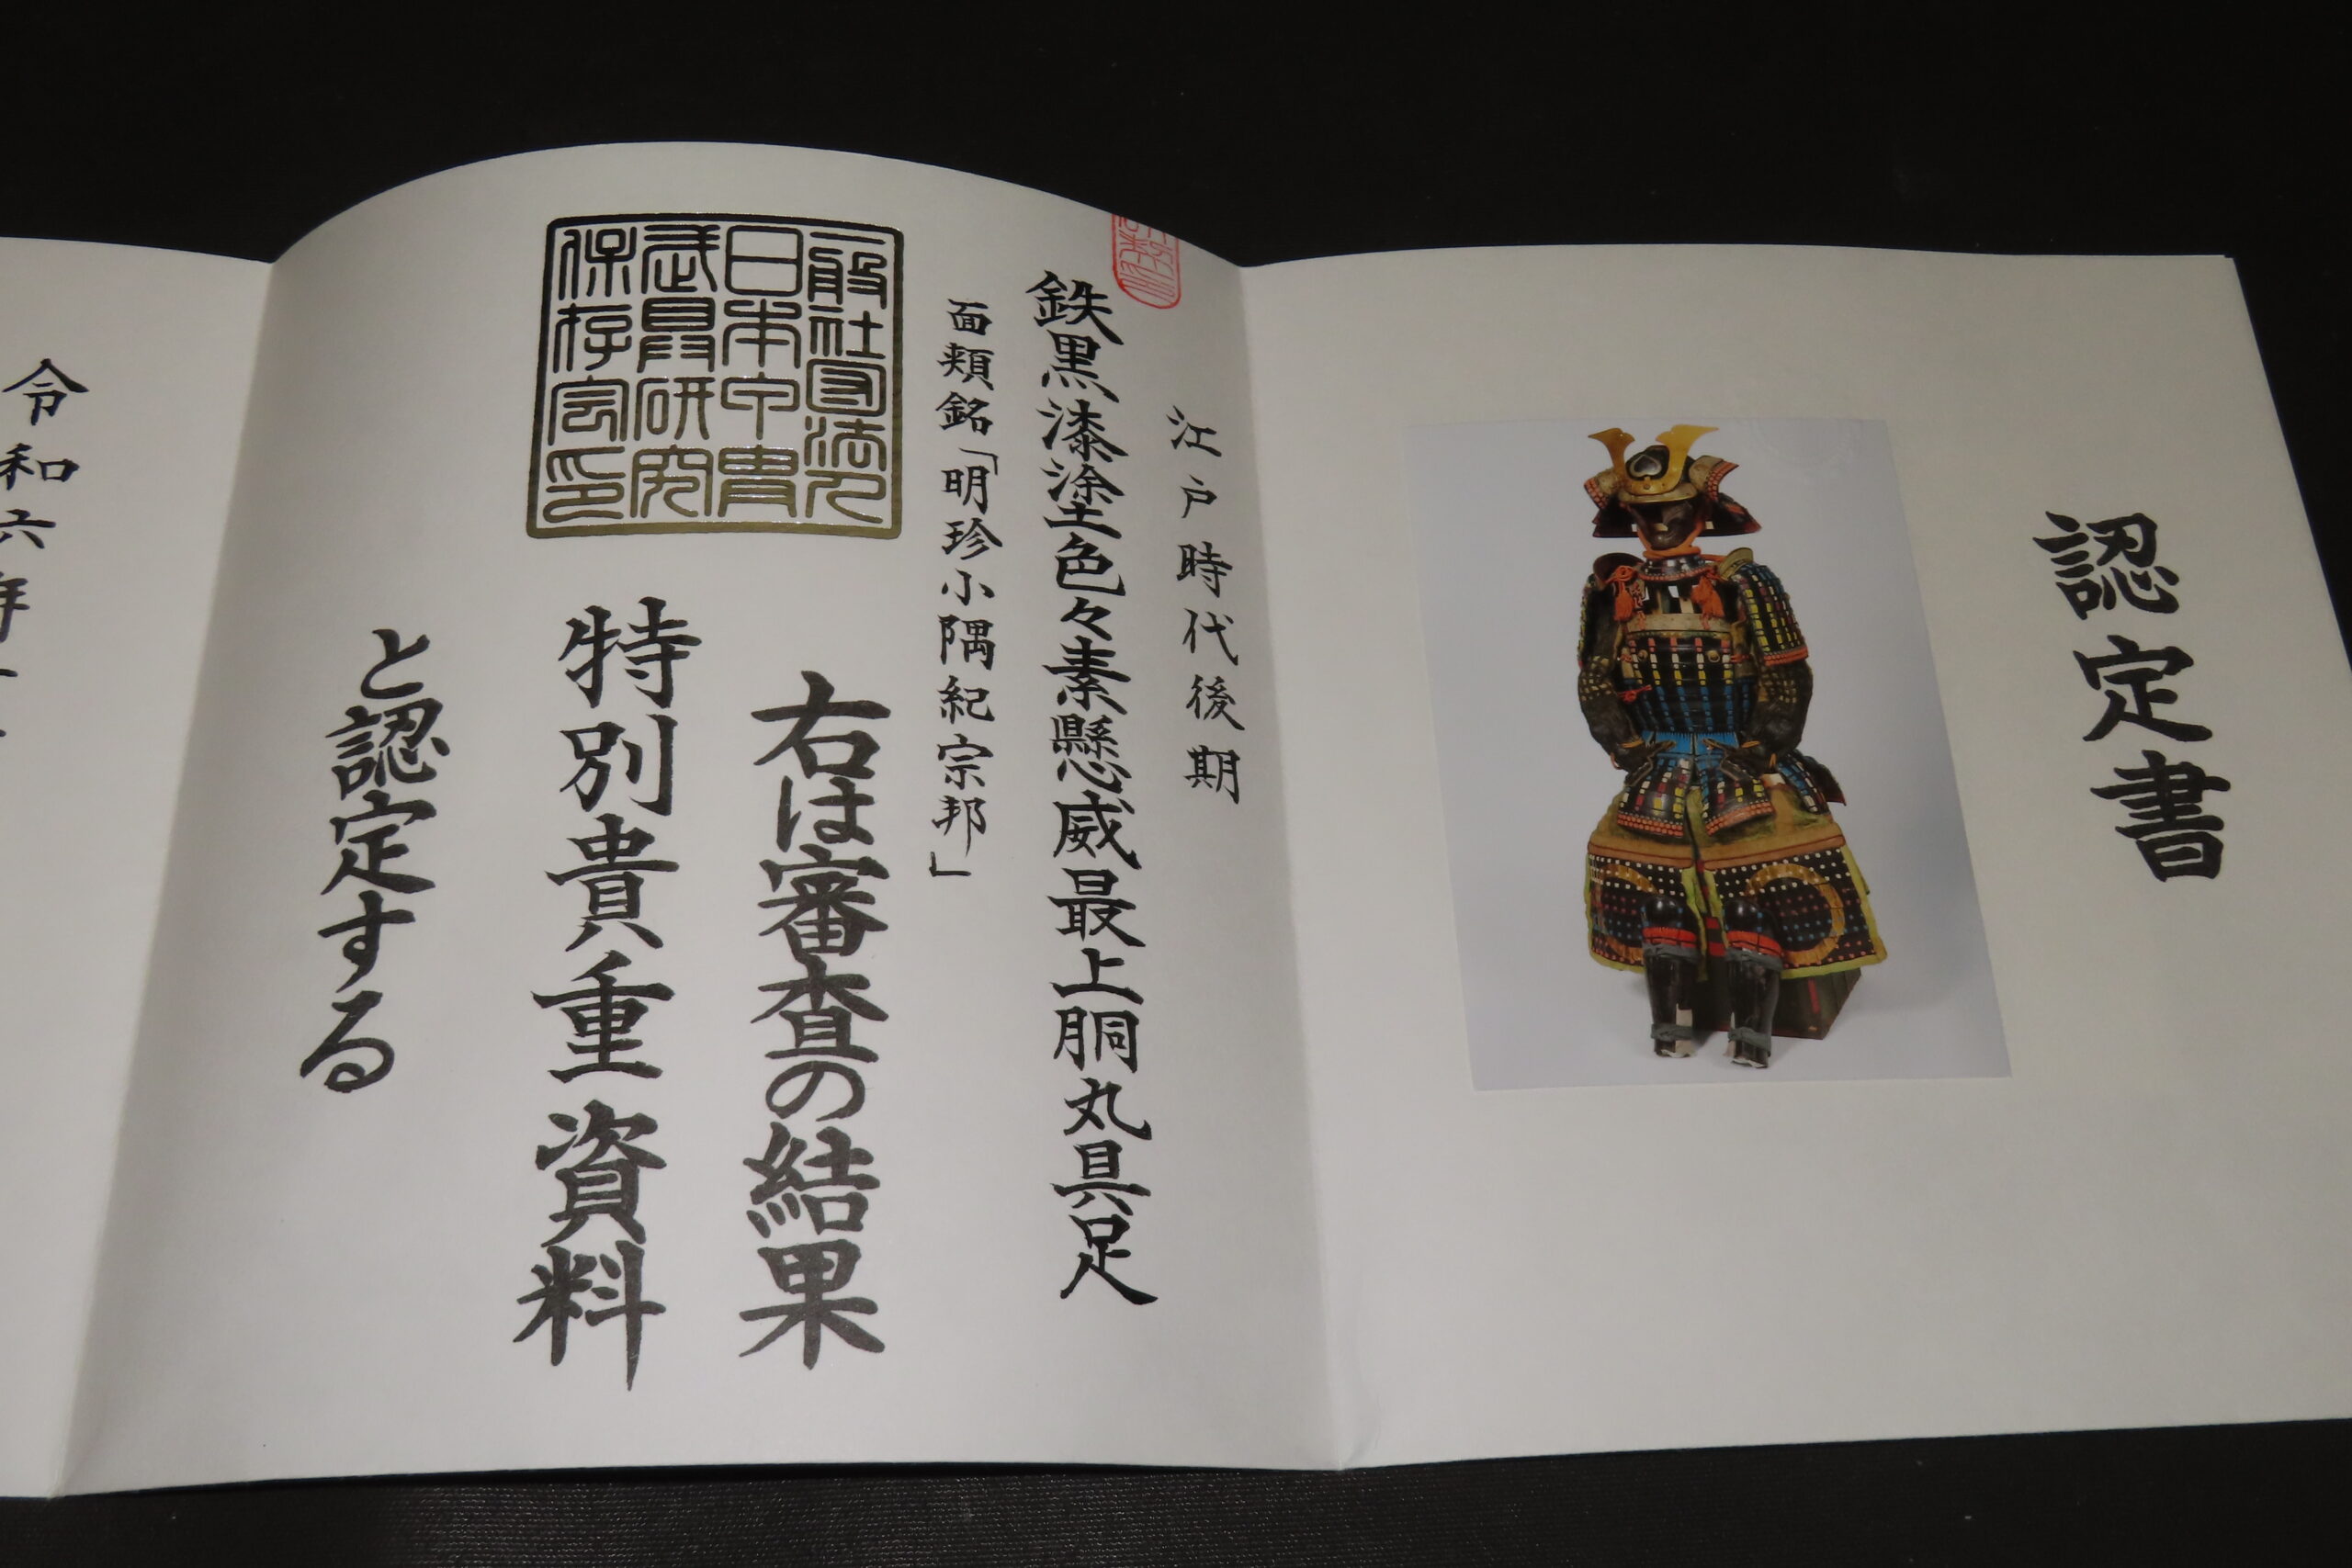 認定書
江戸時代後期
鉄黒漆塗色々素懸威最上胴丸具足
面頬銘「明珍小隅紀宗邦」
一般社団法人
日本甲冑
武具研究
保存会印
右は審査の結果
特別貴重資料
と認定する
令和六年十